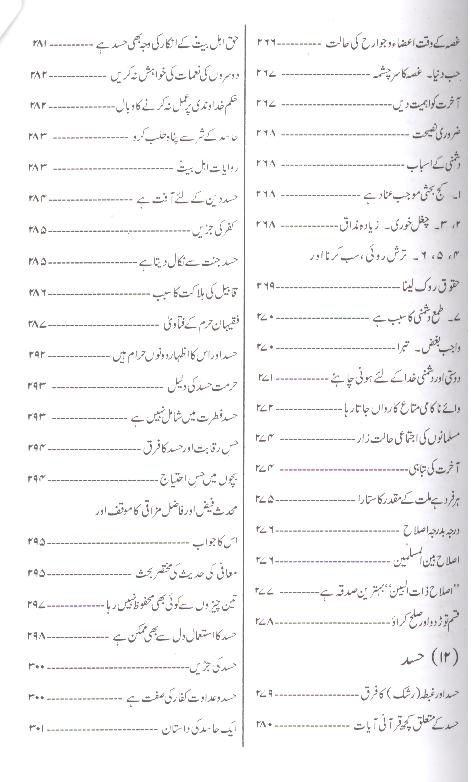 غصہ کے وقت اعضاء و جوارح کی حالت ------------ ۲۶۶
حب دنیا۔ غصہ کا سر چشمہ ------------ ۲۶۷
آخرت کو اہمیت دیں ------------ ۲۶۷
ضروری نصیحت ------------ ۲۶۸
دشمنی کے اسباب ------------ ۲۶۸
۱۔ کج بحثی موجب عناد ہے ------------ ۲۶۸
۲، ۳۔ چغل خوری۔ زیادہ مذاق ------------ ۲۶۸
۴، ۵، ۶۔ ترش روئی، سب کرنا اور
حقوق روک لینا ------------ ۲۶۹
۷۔ طمع دشمنی کا سبب ہے ------------ ۲۷۰
واجب بغض۔ تبرا ------------ ۲۷۰
دوستی اور دشمنی خدا کے لئے ہونی چاہئے ------------ ۲۷۱
وائے ناکامی متاع کارواں جاتا رہا ------------ ۲۷۲
مسلمانوں کی اجتماعی حالت زار ------------ ۲۷۴
آخرت کی تباہی ------------ ۲۷۴
ہر فرد ہے ملت کے مقدر کا ستارا ------------ ۲۷۵
درجہ بدرجہ اصلاح ------------ ۲۷۶
اصلاح بین المسلمین ------------ ۲۷۶
"اصلاح ذات البین" بہترین صدقہ ہے ------------ ۲۷۷
قسم توڑ دو اور صلح کراؤ ------------ ۲۷۸
(۱۲) حسد
حسد اور غبطہ (رشک) کا فرق ------------ ۲۷۹
حسد کے متعلق کچھ قرآنی آیات ------------ ۲۸۰
حق اہل بیتؑ کے انکار کی وجہ بھی حسد ہے ------------ ۲۸۱
دوسروں کی نعمات کی خواہش نہ کریں ------------ ۲۸۲
حکم خداوندی پر عمل نہ کرنے کا وبال ------------ ۲۸۲
حاسد کے شر سے پناہ طلب کرو ------------ ۲۸۳
روایات اہل بیتؑ ------------ ۲۸۳
حسد دین کے لئے آفت ہے ------------ ۲۸۴
کفر کی جڑیں ------------ ۲۸۵
حسد جنت سے نکال دیتا ہے ------------ ۲۸۵
قابیل کی ہلاکت کا سبب ------------ ۲۸۶
فقیہان حرم کے فتاویٰ ------------ ۲۸۷
حسد اور اس کا اظہار دونوں حرام ہیں ------------ ۲۹۲
حرمت حسد کی دلیل ------------ ۲۹۳
حسد فطرت میں شامل نہیں ہے ------------ ۲۹۳
حس رقابت اور حسد کا فرق ------------ ۲۹۴
بچوں میں حس احتیاج ------------ ۲۹۴
محدث فیض اور فاضل نراقی کا موقف اور
اس کا جواب ------------ ۲۹۵
معافی کی حدیث کی مختصر بحث ------------ ۲۹۵
تین چیزوں سے کوئی بھی محفوظ نہیں رہا ------------ ۲۹۷
حسد کا استعمال دل سے بھی ممکن ہے ------------ ۲۹۸
حسد کی جڑیں ------------ ۳۰۰
حسد و عداوت کفار کی صفت ہے ------------ ۳۰۰
ایک حاسد کی داستان ------------ ۳۰۱